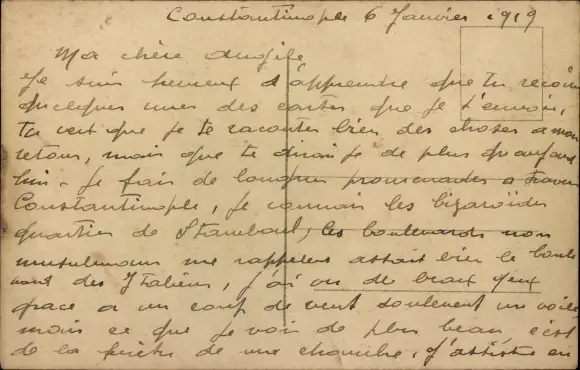 Constantinople 6 Janvier 1919
Ma chère Angèle
Je suis heureux d'apprendre que tu reçois
quelques unes des cartes que je t'envoie,
tu veut que je te raconte bien des choses a mon
retour, mais que te dirai je de plus qu'aujourd
hui. Je fais de longues promenades a travers
Constantinople, je connais les
quartier de Stamboul, les boulevards non
musulmans me rappelent assait bien le boule
vard des Italiens, j'ai vu de beaux yeux
grace a un coup de vent soulevent un voile
mais ce que je vois de plus beau c'est
de la fenêtre de une chambre, j'assiste en